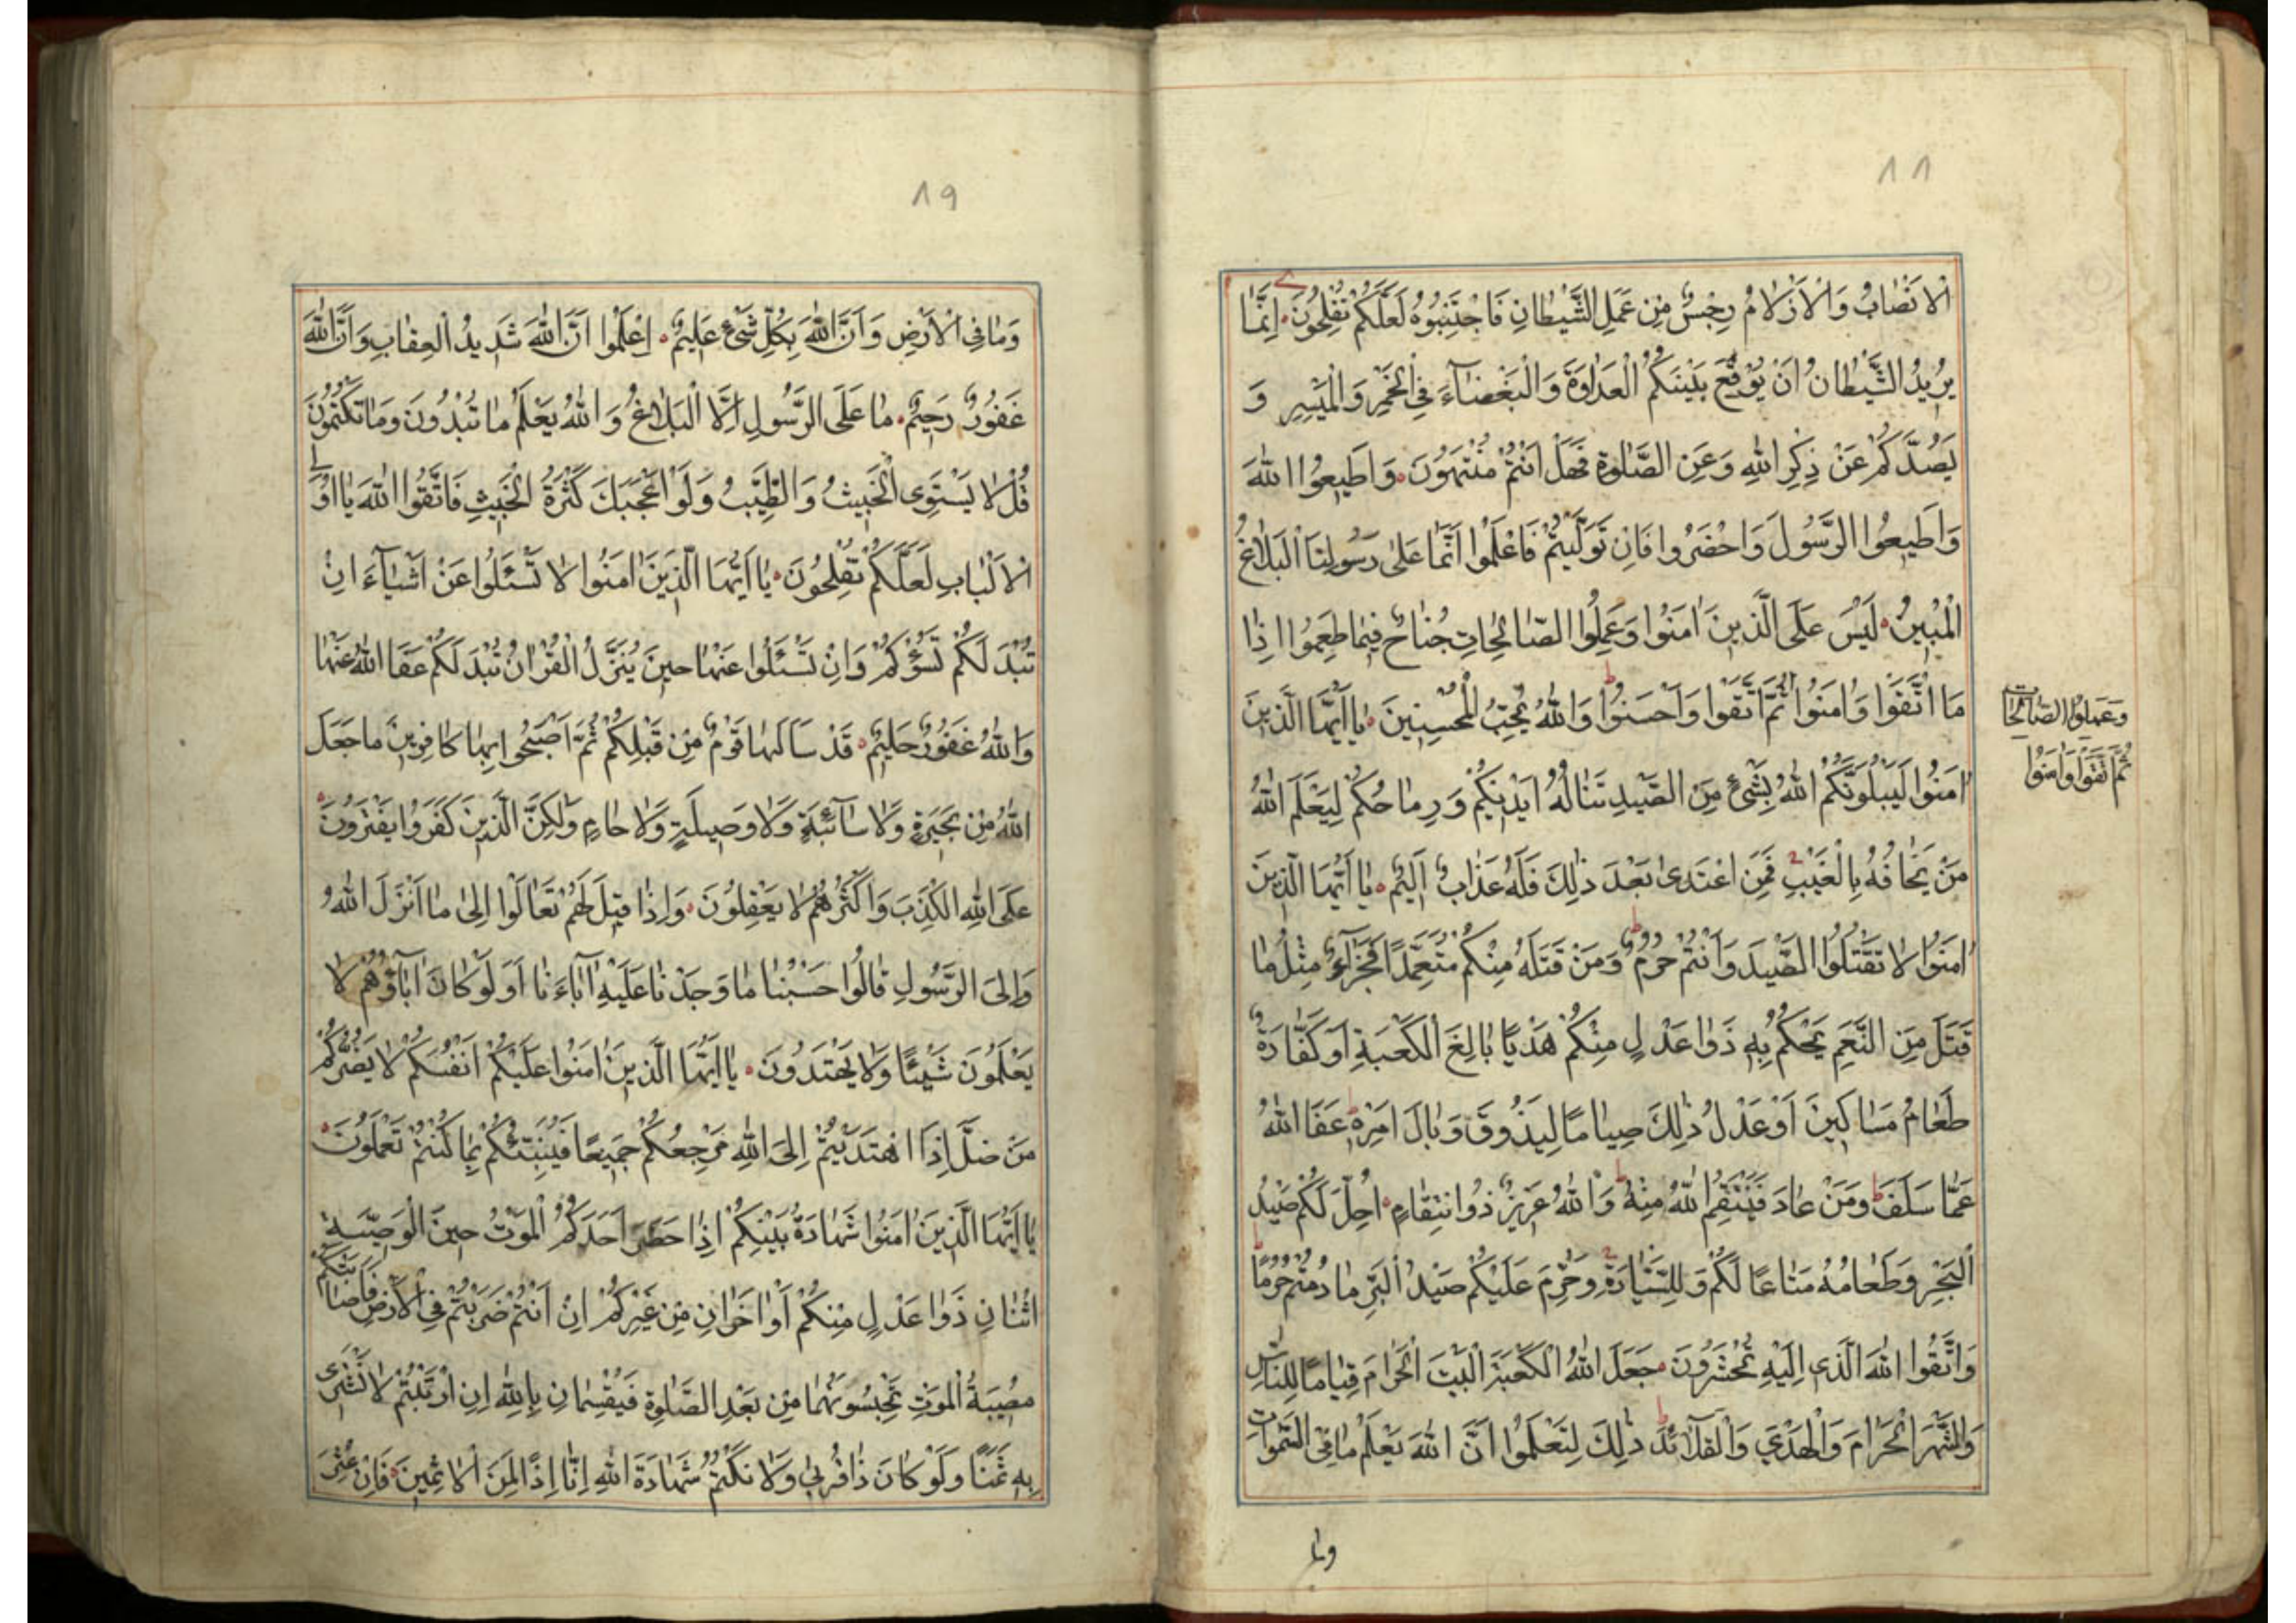 ٨٨
الْاَنْصَابُ وَالْاَزْلَامُ رِجْسٌ مِنْ عَمَلِ الشَّيْطَانِ فَاجْتَنِبُوهُ لَعَلَّكُمْ تُفْلِحُونَ اِنَّمَا
يُرِيدُ الشَّيْطَانُ اَنْ يُوقِعَ بَيْنَكُمُ الْعَدَاوَةَ وَالْبَغْضَآءَ فِي الْخَمْرِ وَالْمَيْسِرِ وَ
يَصُدَّكُمْ عَنْ ذِكْرِ اللهِ وَعَنِ الصَّلٰوةِ فَهَلْ اَنْتُمْ مُنْتَهُونَ وَاَطِيعُوا اللهَ
وَاَطِيعُوا الرَّسُولَ وَاحْضَرُوا فَاِنْ تَوَلَّيْتُمْ فَاعْلَمُوا اَنَّمَا عَلٰى رَسُولِنَا الْبَلَاغُ
الْمُبِينُ لَيْسَ عَلَى الَّذِينَ اٰمَنُوا وَعَمِلُوا الصَّالِحَاتِ جُنَاحٌ فِيمَا طَعِمُوا اِذَا
مَا اتَّقَوْا وَاٰمَنُوا ثُمَّ اتَّقَوْا وَاَحْسَنُوا وَاللهُ يُحِبُّ الْمُحْسِنِينَ يَا اَيُّهَا الَّذِينَ
وَعَمِلُوا الصَّالِحَاتِ
ثُمَّ اتَّقَوْا وَاٰمَنُوا
اٰمَنُوا لَيَبْلُوَنَّكُمُ اللهُ بِشَيْءٍ مِنَ الصَّيْدِ تَنَالُهُ اَيْدِيكُمْ وَرِمَاحُكُمْ لِيَعْلَمَ اللهُ
مَنْ يَخَافُهُ بِالْغَيْبِ فَمَنِ اعْتَدٰى بَعْدَ ذٰلِكَ فَلَهُ عَذَابٌ اَلِيمٌ يَا اَيُّهَا الَّذِينَ
اٰمَنُوا لَا تَقْتُلُوا الصَّيْدَ وَاَنْتُمْ حُرُمٌ وَمَنْ قَتَلَهُ مِنْكُمْ مُتَعَمِّدًا فَجَزَآءٌ مِثْلُ مَا
قَتَلَ مِنَ النَّعَمِ يَحْكُمُ بِهِ ذَوَا عَدْلٍ مِنْكُمْ هَدْيًا بَالِغَ الْكَعْبَةِ اَوْ كَفَّارَةٌ
طَعَامُ مَسَاكِينَ اَوْ عَدْلُ ذٰلِكَ صِيَامًا لِيَذُوقَ وَبَالَ اَمْرِهِ عَفَا اللهُ
عَمَّا سَلَفَ وَمَنْ عَادَ فَيَنْتَقِمُ اللهُ مِنْهُ وَاللهُ عَزِيزٌ ذُو انْتِقَامٍ اُحِلَّ لَكُمْ صَيْدُ
الْبَحْرِ وَطَعَامُهُ مَتَاعًا لَكُمْ وَلِلسَّيَّارَةِ وَحُرِّمَ عَلَيْكُمْ صَيْدُ الْبَرِّ مَا دُمْتُمْ حُرُمًا
وَاتَّقُوا اللهَ الَّذِي اِلَيْهِ تُحْشَرُونَ جَعَلَ اللهُ الْكَعْبَةَ الْبَيْتَ الْحَرَامَ قِيَامًا لِلنَّاسِ
وَالشَّهْرَ الْحَرَامَ وَالْهَدْيَ وَالْقَلَآئِدَ ذٰلِكَ لِتَعْلَمُوا اَنَّ اللهَ يَعْلَمُ مَا فِي السَّمٰوَاتِ
وما
٨٩
وَمَا فِي الْاَرْضِ وَاَنَّ اللهَ بِكُلِّ شَيْءٍ عَلِيمٌ اِعْلَمُوا اَنَّ اللهَ شَدِيدُ الْعِقَابِ وَاَنَّ اللهَ
غَفُورٌ رَحِيمٌ مَا عَلَى الرَّسُولِ اِلَّا الْبَلَاغُ وَاللهُ يَعْلَمُ مَا تُبْدُونَ وَمَا تَكْتُمُونَ
قُلْ لَا يَسْتَوِي الْخَبِيثُ وَالطَّيِّبُ وَلَوْ اَعْجَبَكَ كَثْرَةُ الْخَبِيثِ فَاتَّقُوا اللهَ يَا اُولِي
الْاَلْبَابِ لَعَلَّكُمْ تُفْلِحُونَ يَا اَيُّهَا الَّذِينَ اٰمَنُوا لَا تَسْئَلُوا عَنْ اَشْيَآءَ اِنْ
تُبْدَ لَكُمْ تَسُؤْكُمْ وَاِنْ تَسْئَلُوا عَنْهَا حِينَ يُنَزَّلُ الْقُرْاٰنُ تُبْدَ لَكُمْ عَفَا اللهُ عَنْهَا
وَاللهُ غَفُورٌ حَلِيمٌ قَدْ سَاَلَهَا قَوْمٌ مِنْ قَبْلِكُمْ ثُمَّ اَصْبَحُوا بِهَا كَافِرِينَ مَا جَعَلَ
اللهُ مِنْ بَحِيرَةٍ وَلَا سَآئِبَةٍ وَلَا وَصِيلَةٍ وَلَا حَامٍ وَلٰكِنَّ الَّذِينَ كَفَرُوا يَفْتَرُونَ
عَلَى اللهِ الْكَذِبَ وَاَكْثَرُهُمْ لَا يَعْقِلُونَ وَاِذَا قِيلَ لَهُمْ تَعَالَوْا اِلٰى مَا اَنْزَلَ اللهُ
وَاِلَى الرَّسُولِ قَالُوا حَسْبُنَا مَا وَجَدْنَا عَلَيْهِ اٰبَآءَنَا اَوَلَوْ كَانَ اٰبَآؤُهُمْ لَا
يَعْلَمُونَ شَيْئًا وَلَا يَهْتَدُونَ يَا اَيُّهَا الَّذِينَ اٰمَنُوا عَلَيْكُمْ اَنْفُسَكُمْ لَا يَضُرُّكُمْ
مَنْ ضَلَّ اِذَا اهْتَدَيْتُمْ اِلَى اللهِ مَرْجِعُكُمْ جَمِيعًا فَيُنَبِّئُكُمْ بِمَا كُنْتُمْ تَعْمَلُونَ
يَا اَيُّهَا الَّذِينَ اٰمَنُوا شَهَادَةُ بَيْنِكُمْ اِذَا حَضَرَ اَحَدَكُمُ الْمَوْتُ حِينَ الْوَصِيَّةِ
اثْنَانِ ذَوَا عَدْلٍ مِنْكُمْ اَوْ اٰخَرَانِ مِنْ غَيْرِكُمْ اِنْ اَنْتُمْ ضَرَبْتُمْ فِي الْاَرْضِ فَاَصَابَتْكُمْ
مُصِيبَةُ الْمَوْتِ تَحْبِسُونَهُمَا مِنْ بَعْدِ الصَّلٰوةِ فَيُقْسِمَانِ بِاللهِ اِنِ ارْتَبْتُمْ لَا نَشْتَرِي
بِهِ ثَمَنًا وَلَوْ كَانَ ذَا قُرْبٰى وَلَا نَكْتُمُ شَهَادَةَ اللهِ اِنَّا اِذًا لَمِنَ الْاٰثِمِينَ فَاِنْ عُثِرَ